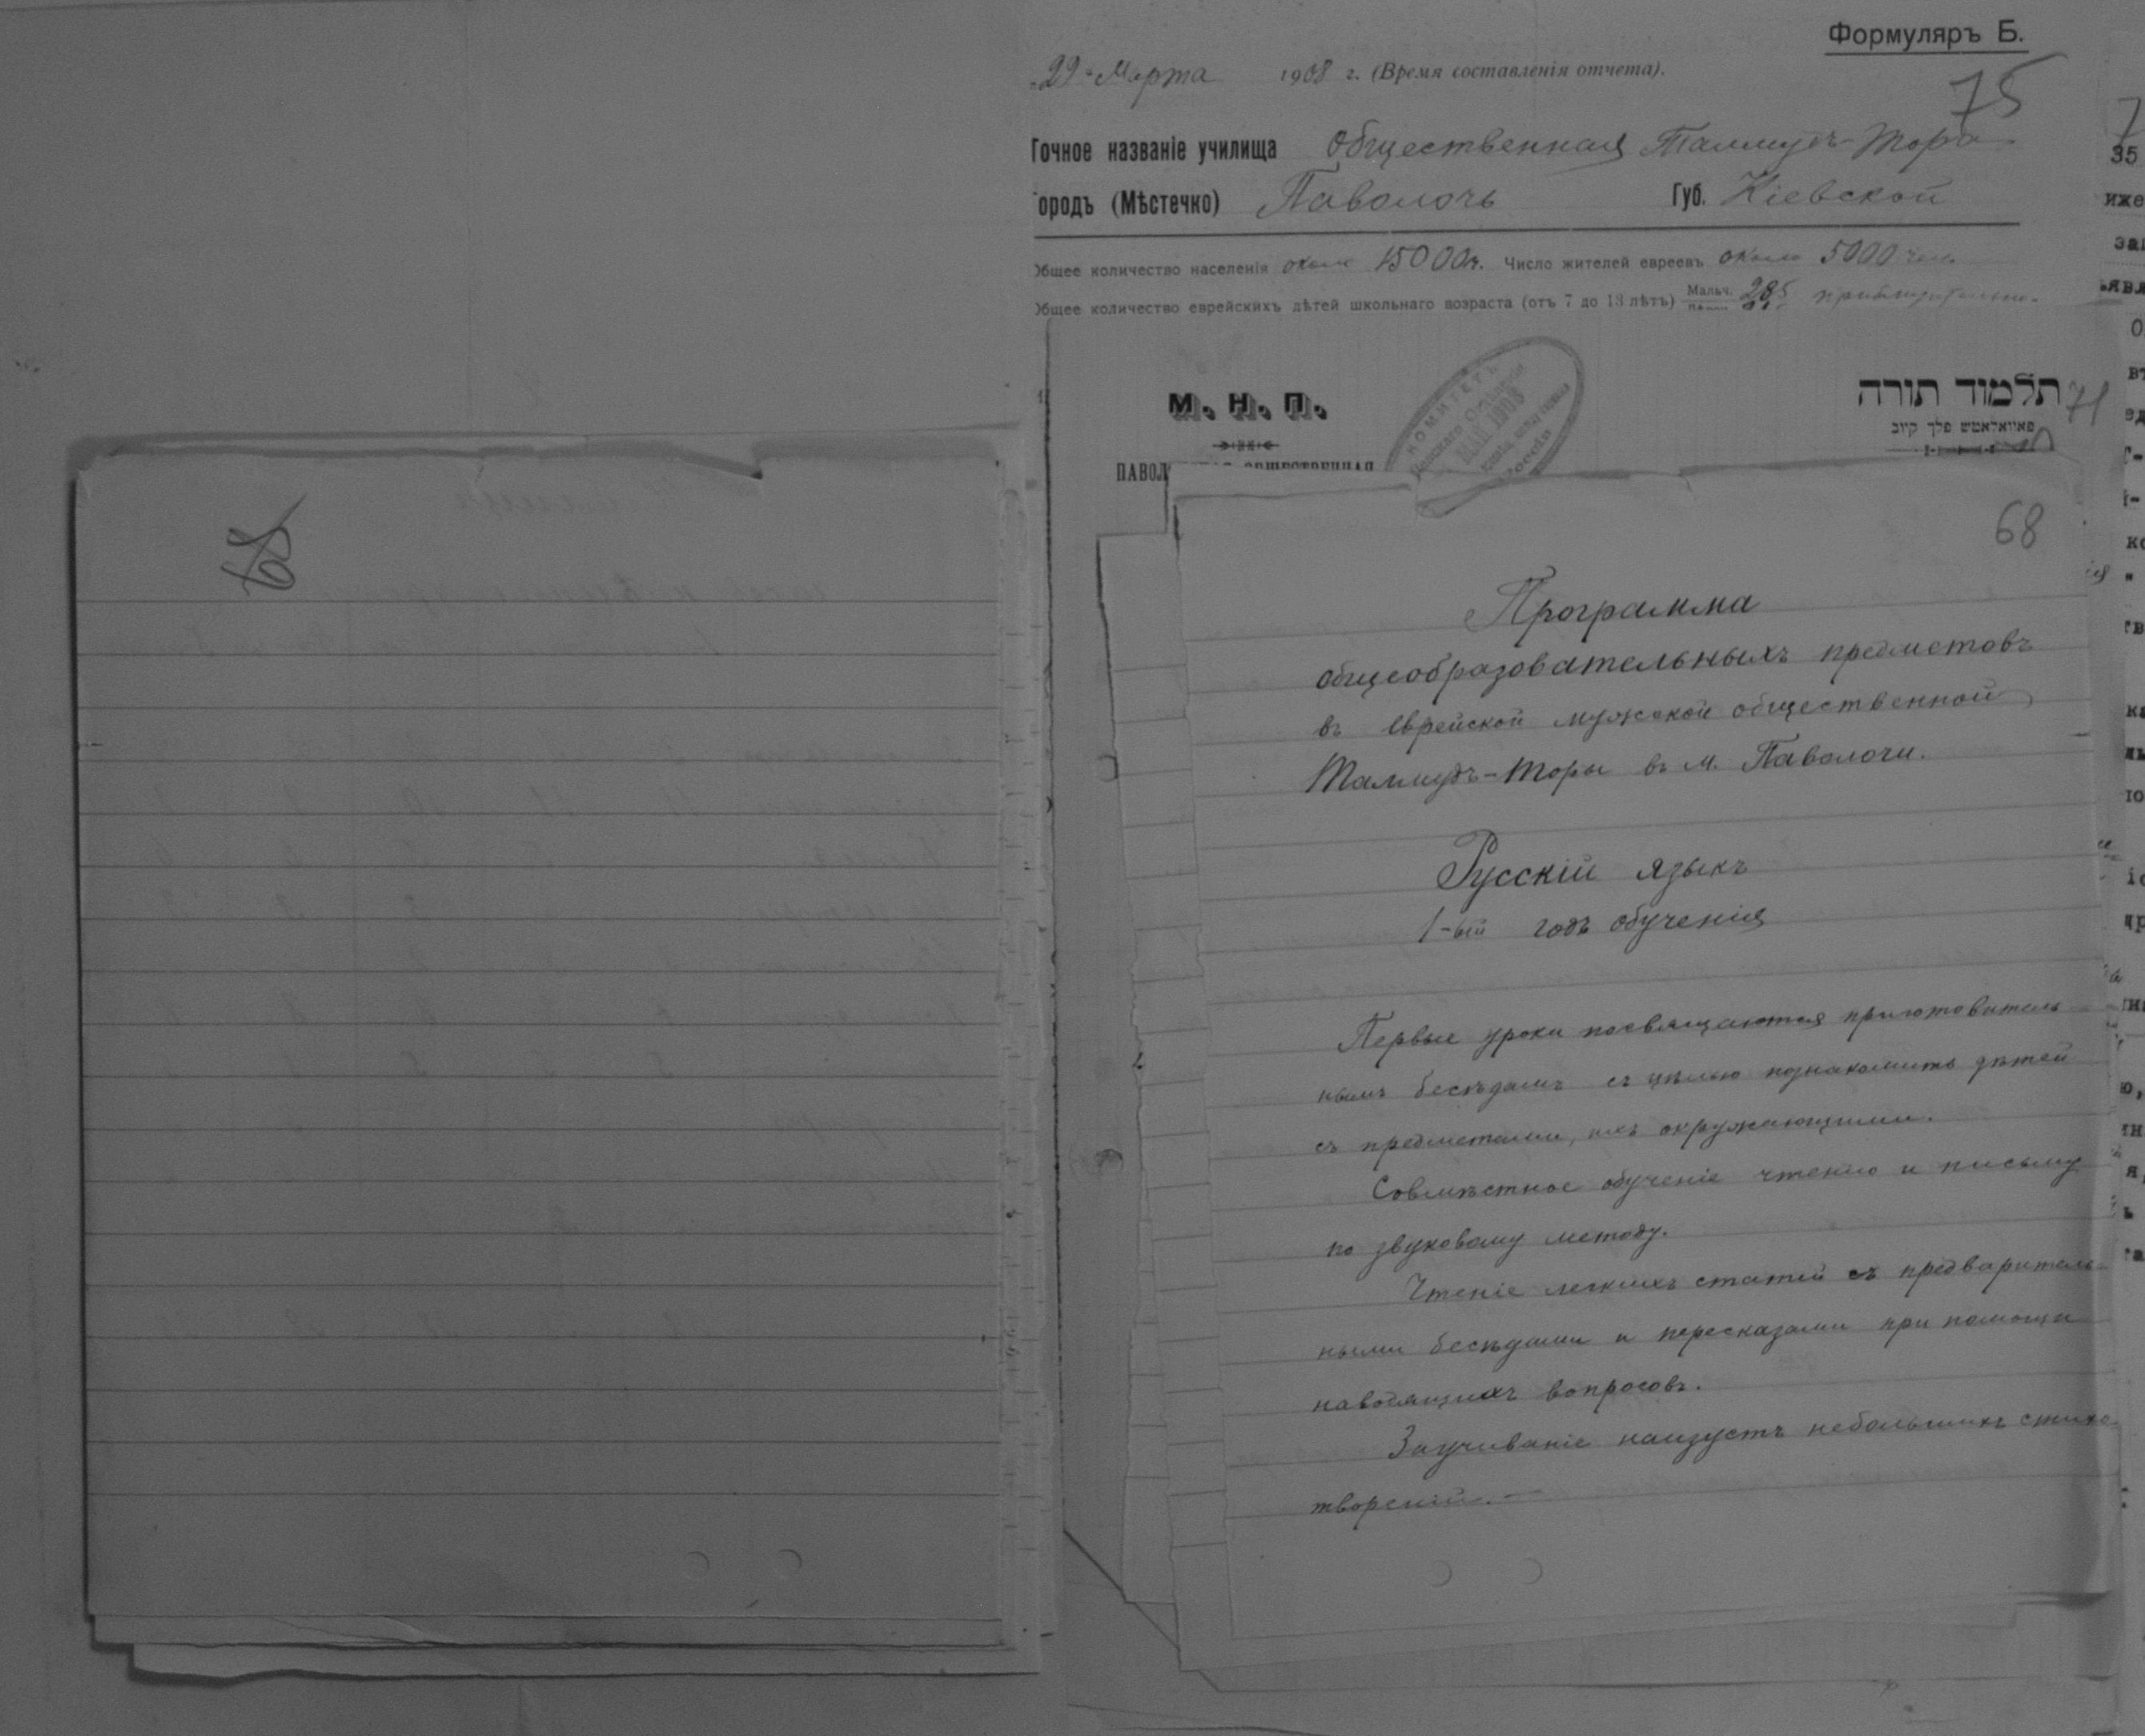 Формуляръ Б.
"29" Марта 1908 г. (Время составленія отчета).
75
Точное названіе училища Общественная Талмудъ-Тора
ородъ (Мѣстечко) Паволочь Губ. Кіевской
Общее количество населенія около 15000 ч. Число жителей евреевъ около 5000 чел.
Общее количество еврейскихъ дѣтей школьнаго возраста (отъ 7 до 13 лѣтъ) Мальч. 285 приблизительно.
М. Н. П.
תלמוד תורה
71
פאוואלאטש פלך קיוב
КОМИТЕТЪ
МАР 1908
Россіи
ПАВОЛ ОБЩЕСТВЕННАЯ
68
68
Программа
общеобразовательныхъ предметовъ
въ еврейской мужской общественной
Талмудъ-Торы въ м. Паволочи.
Русскій языкъ
1-ый годъ обученія
Первые уроки посвящаются приготовитель
нымъ бесѣдамъ съ цѣлью познакомить дѣтей
съ предметами, ихъ окружающими.
Совмѣстное обученіе чтенію и письму
по звуковому методу.
Чтеніе легкихъ статей съ предваритель
ными бесѣдами и пересказами при помощи
наводящихъ вопросовъ.
Заучиваніе наизусть небольшихъ стихо
твореній.—